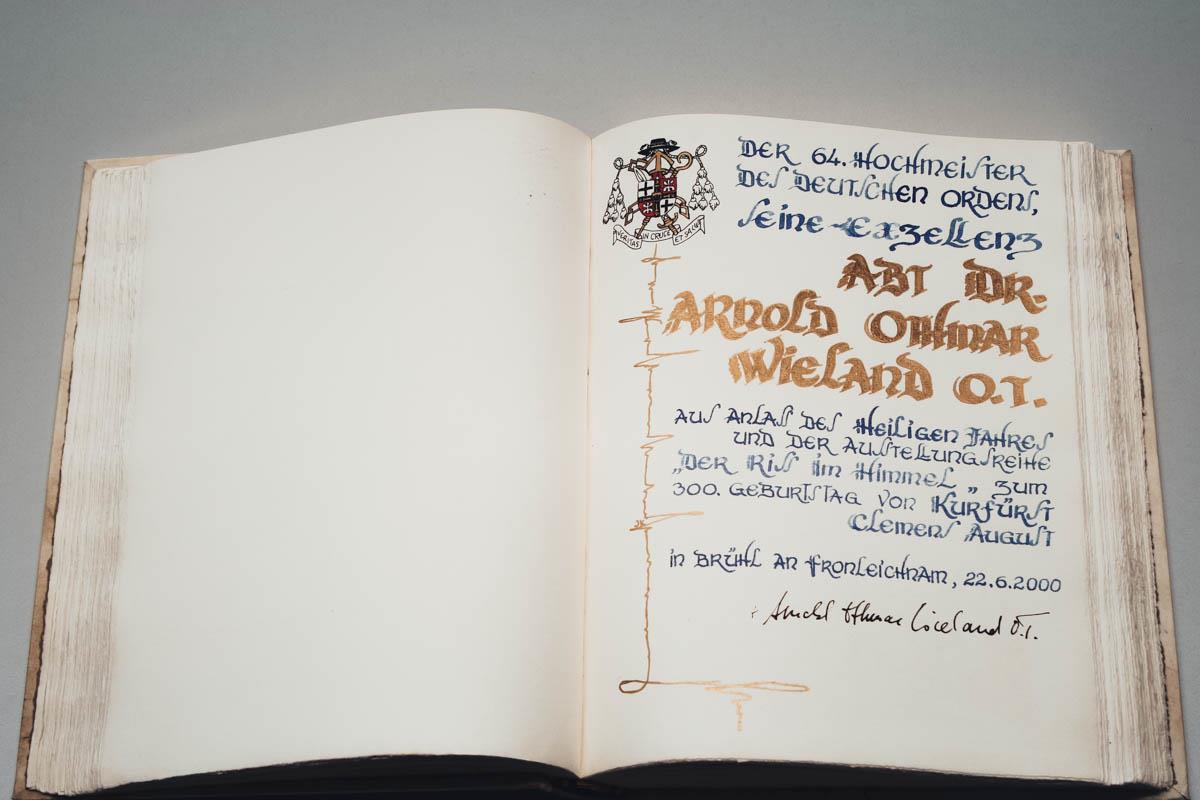 VERITAS IN CRUCE ET SALUS
DER 64. HOCHMEISTER
DES DEUTSCHEN ORDENS,
SEINE EXZELLENZ
ABT DR.
ARNOLD OTHMAR
WIELAND O.T.
AUS ANLAS DES HEILIGEN JAHRES
UND DER AUSTELLUNGSREIHE
„DER RISS IM HIMMEL„ ZUM
300. GEBURTSTAG VON KURFÜRST
CLEMENS AUGUST
IN BRÜHL AN FRONLEICHNAM, 22.6.2000
+ Arnold Othmar Wieland O.T.